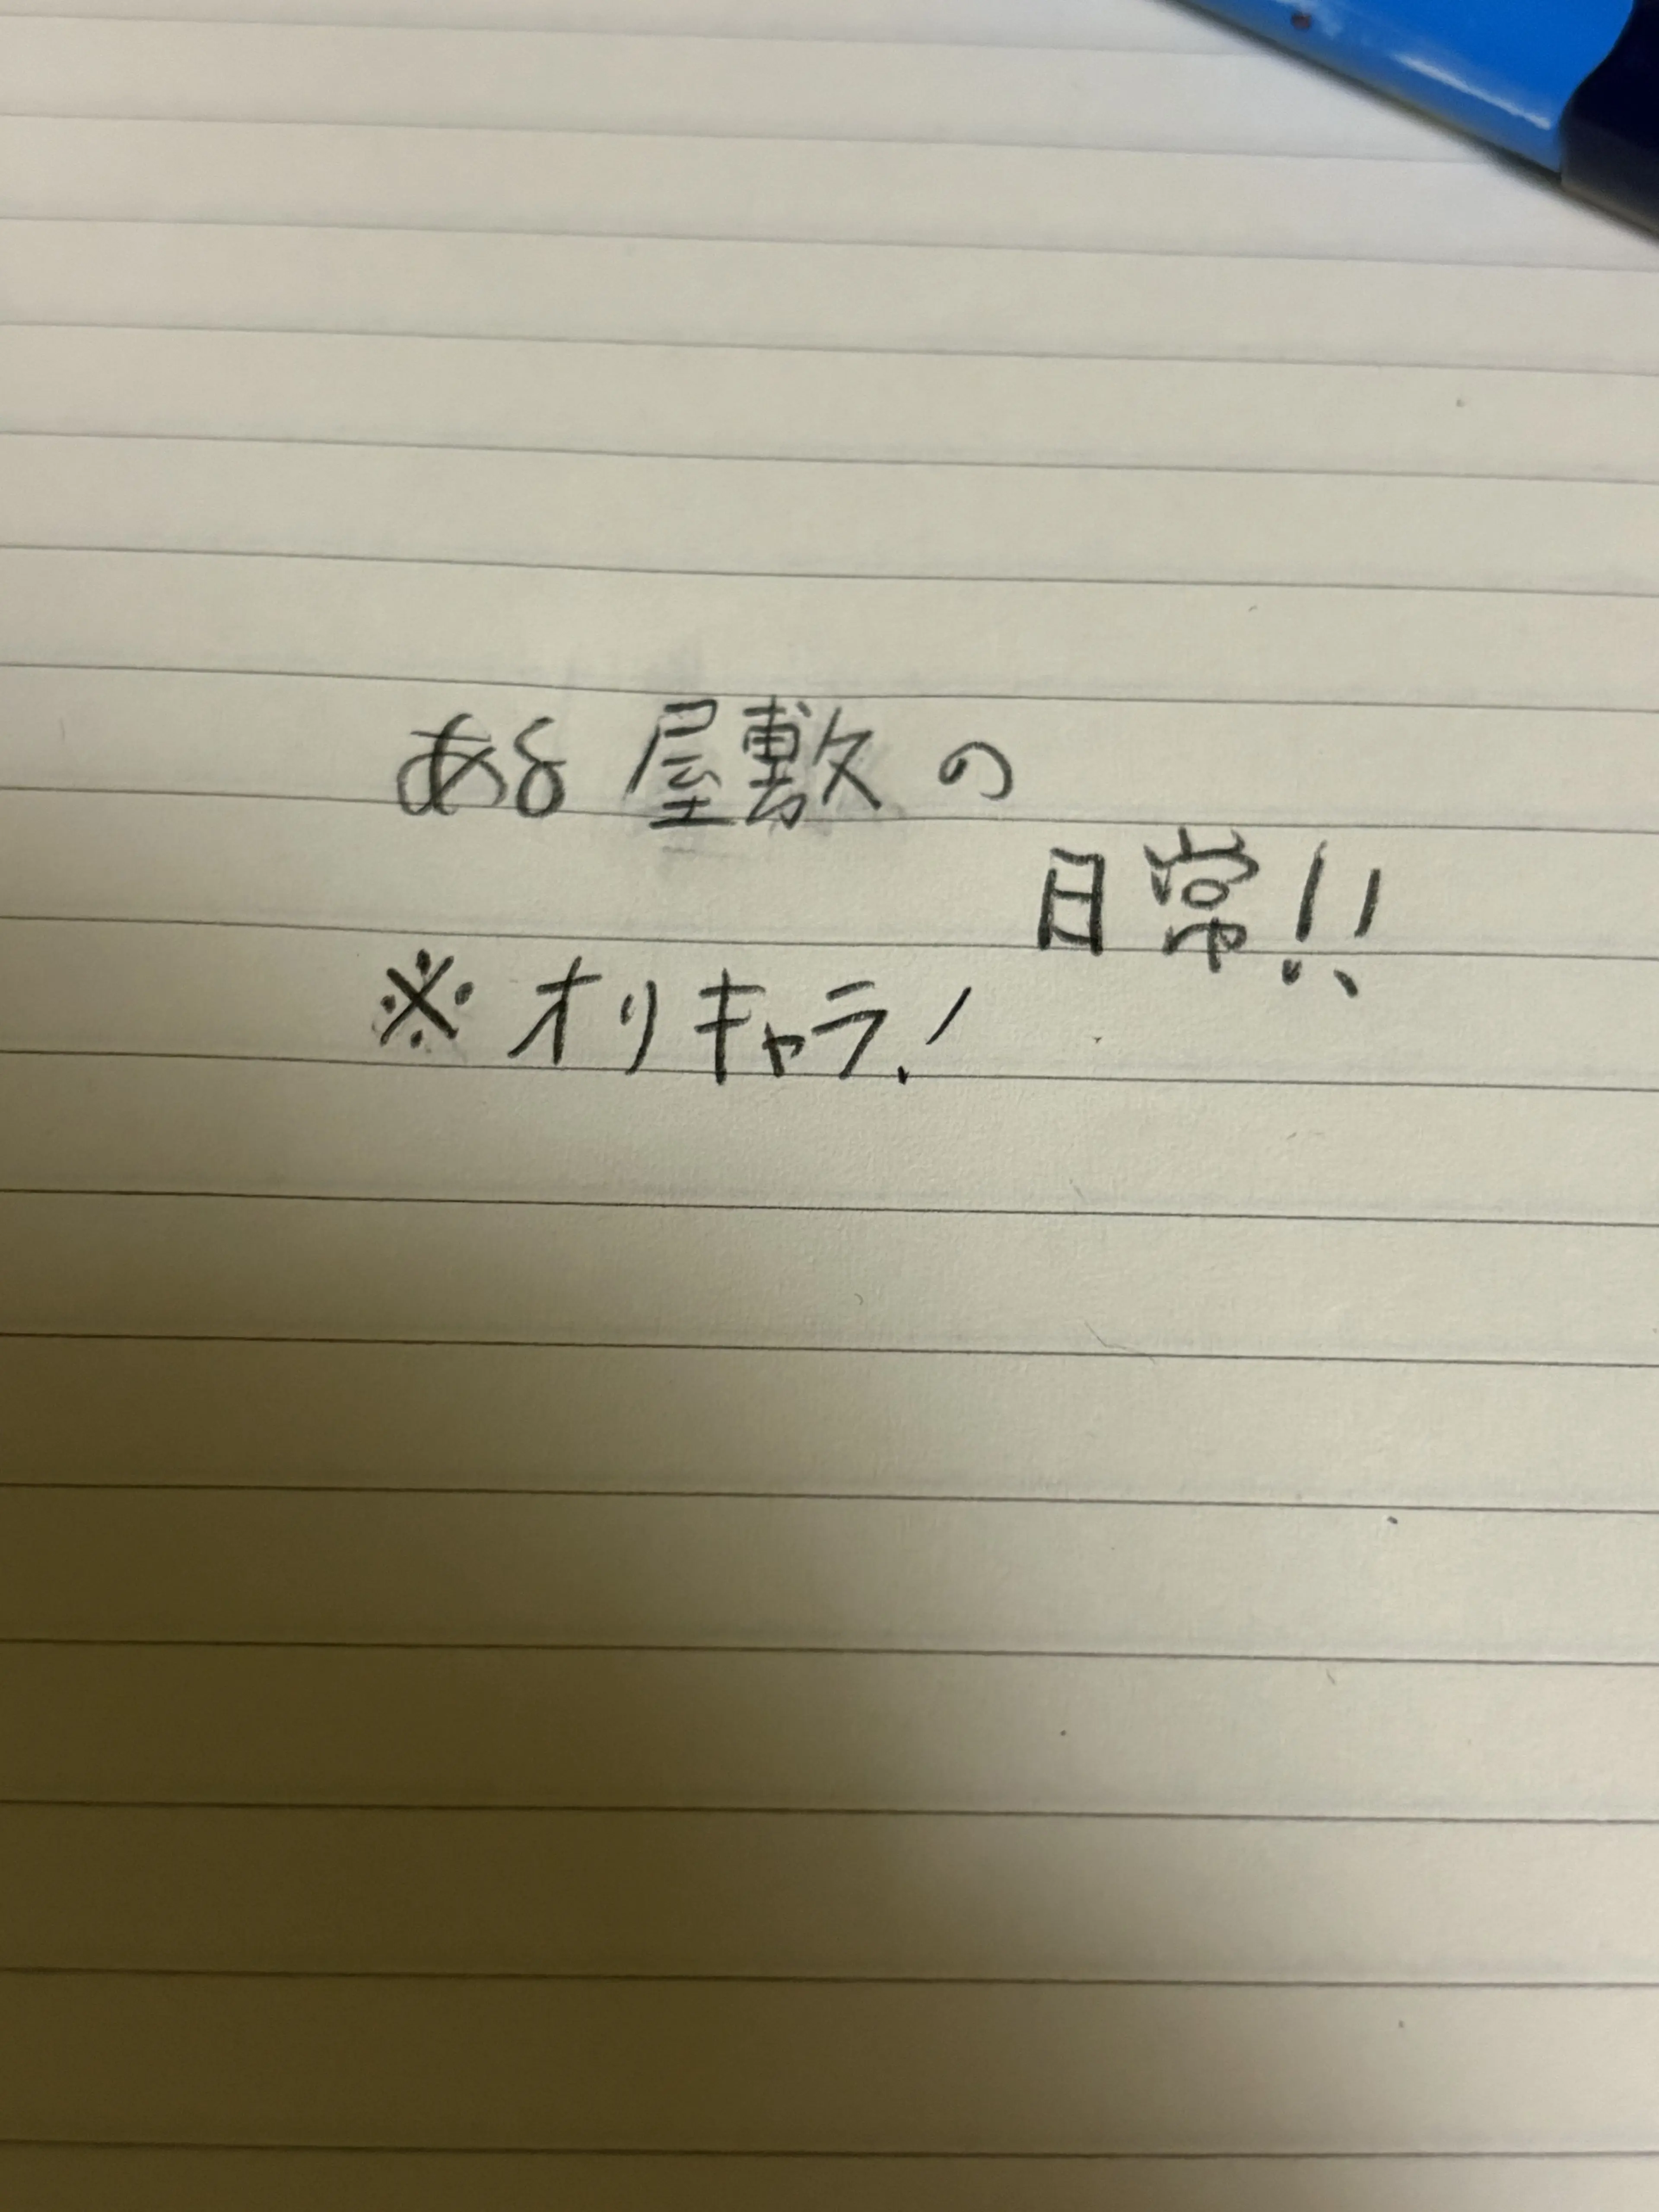 ある屋敷の
日常!!
※オリキャラ!